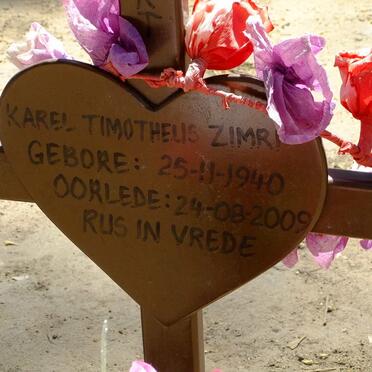 KAREL TIMOTHEUS ZIMRI
GEBORE: 25-11-1940
OORLEDE: 24-08-2009
RUS IN VREDE